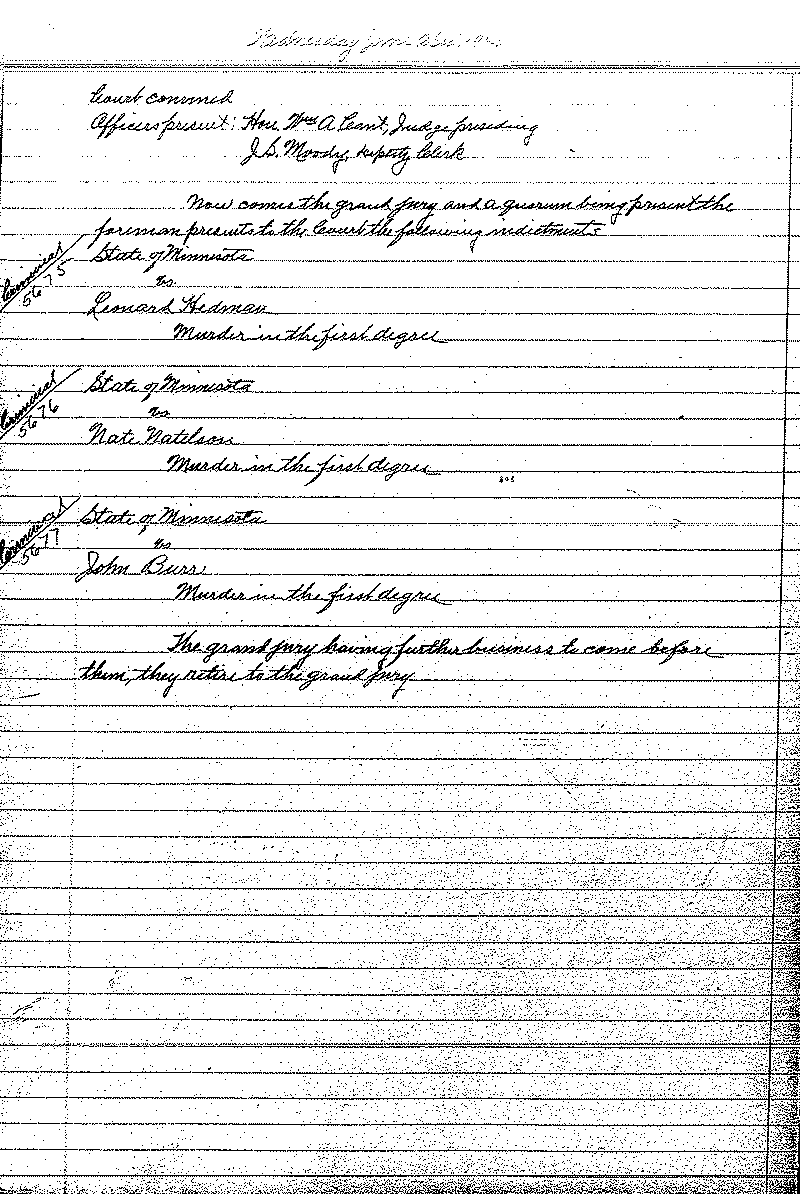 Wednesday June
Court convened
Officers present: Hon. Wm A Cant, Judge presiding
J. S. Moody, deputy Clerk
Now comes the grand jury and a quorum being present the
foreman presents to the Court the following indictments:
Criminal
5675
State of Minnesota
vs
Leonard Hedman
Murder in the first degree
Criminal
5676
State of Minnesota
vs
Nate Natelson
Murder in the first degree
Criminal
5677
State of Minnesota
vs
John Burr
Murder in the first degree
The grand jury having further business to come before
them, they retire to the grand jury